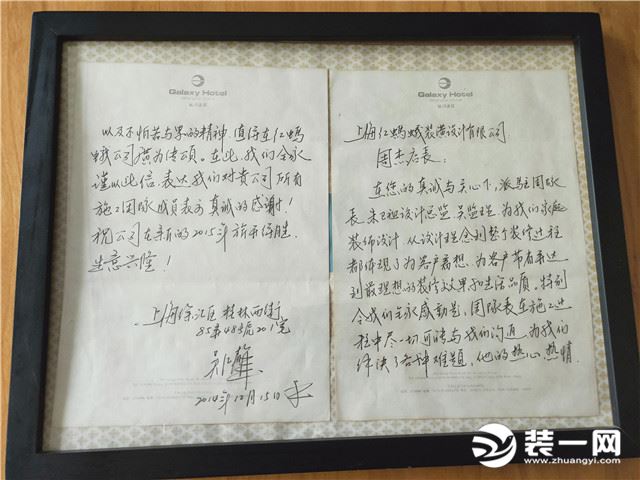 Galaxy Hotel
上海红蚂蚁装潢设计有限公司
周杰店长:
在您的真诚与关心下,派驻团队
长 设计总监 吴监理 为我们家庭
装饰设计,从设计理念到整个装修过程
都体现了为客户着想、为客户带来达
到最理想的装修效果和生活品质。特别
令我们全家感动是,团队长在施工过
程中尽一切可能与我们沟通,为我们
解决了各种难题,他的热心、热情
Galaxy Hotel
以及不怕苦与累的精神,值得在红蚂
蚁公司广为传颂。在此,我们全家
谨以此信表达我们对贵公司所有
施工团队成员表示真诚的感谢!
祝公司在新的2015年旗开得胜,
生意兴隆!
上海徐汇区桂林西街
85弄48号201室
吴
2014年12月15日
装一网
www.zhuangyi.com